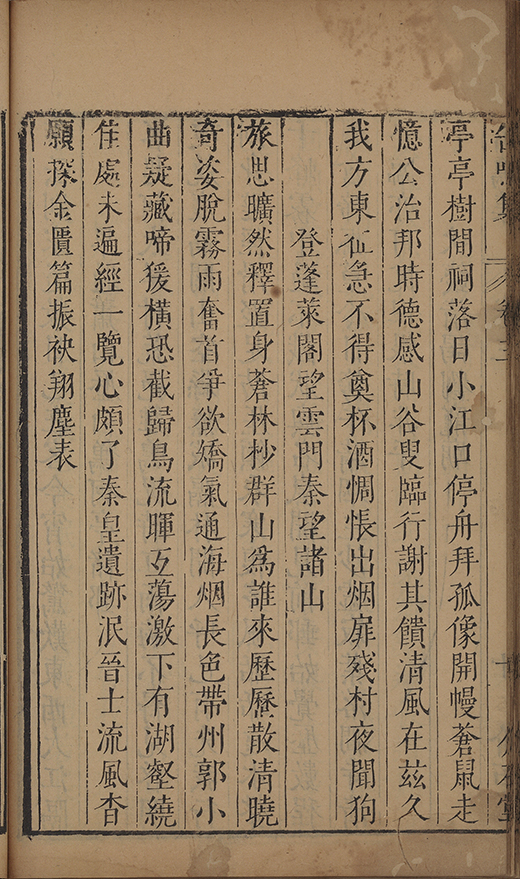 亭亭樹間祠落日小江口停舟拜孤像開幔蒼鼠走
憶公治邦時德感山谷叟臨行謝其饋清風在茲久
我方東征急不得奠杯酒惆悵出烟扉殘村夜聞狗
登蓬萊閣望雲門秦望諸山
旅思曠然釋置身蒼林杪群山爲誰來歷歷散清曉
奇姿脫霧雨奮首爭欲矯氣通海烟長色帶州郭小
曲疑藏啼猨橫恐截歸鳥流暉互蕩激下有湖壑繞
佳處未遍經一覽心頗了秦皇遺跡泯晉士流風杳
願探金匱篇振袂翔塵表